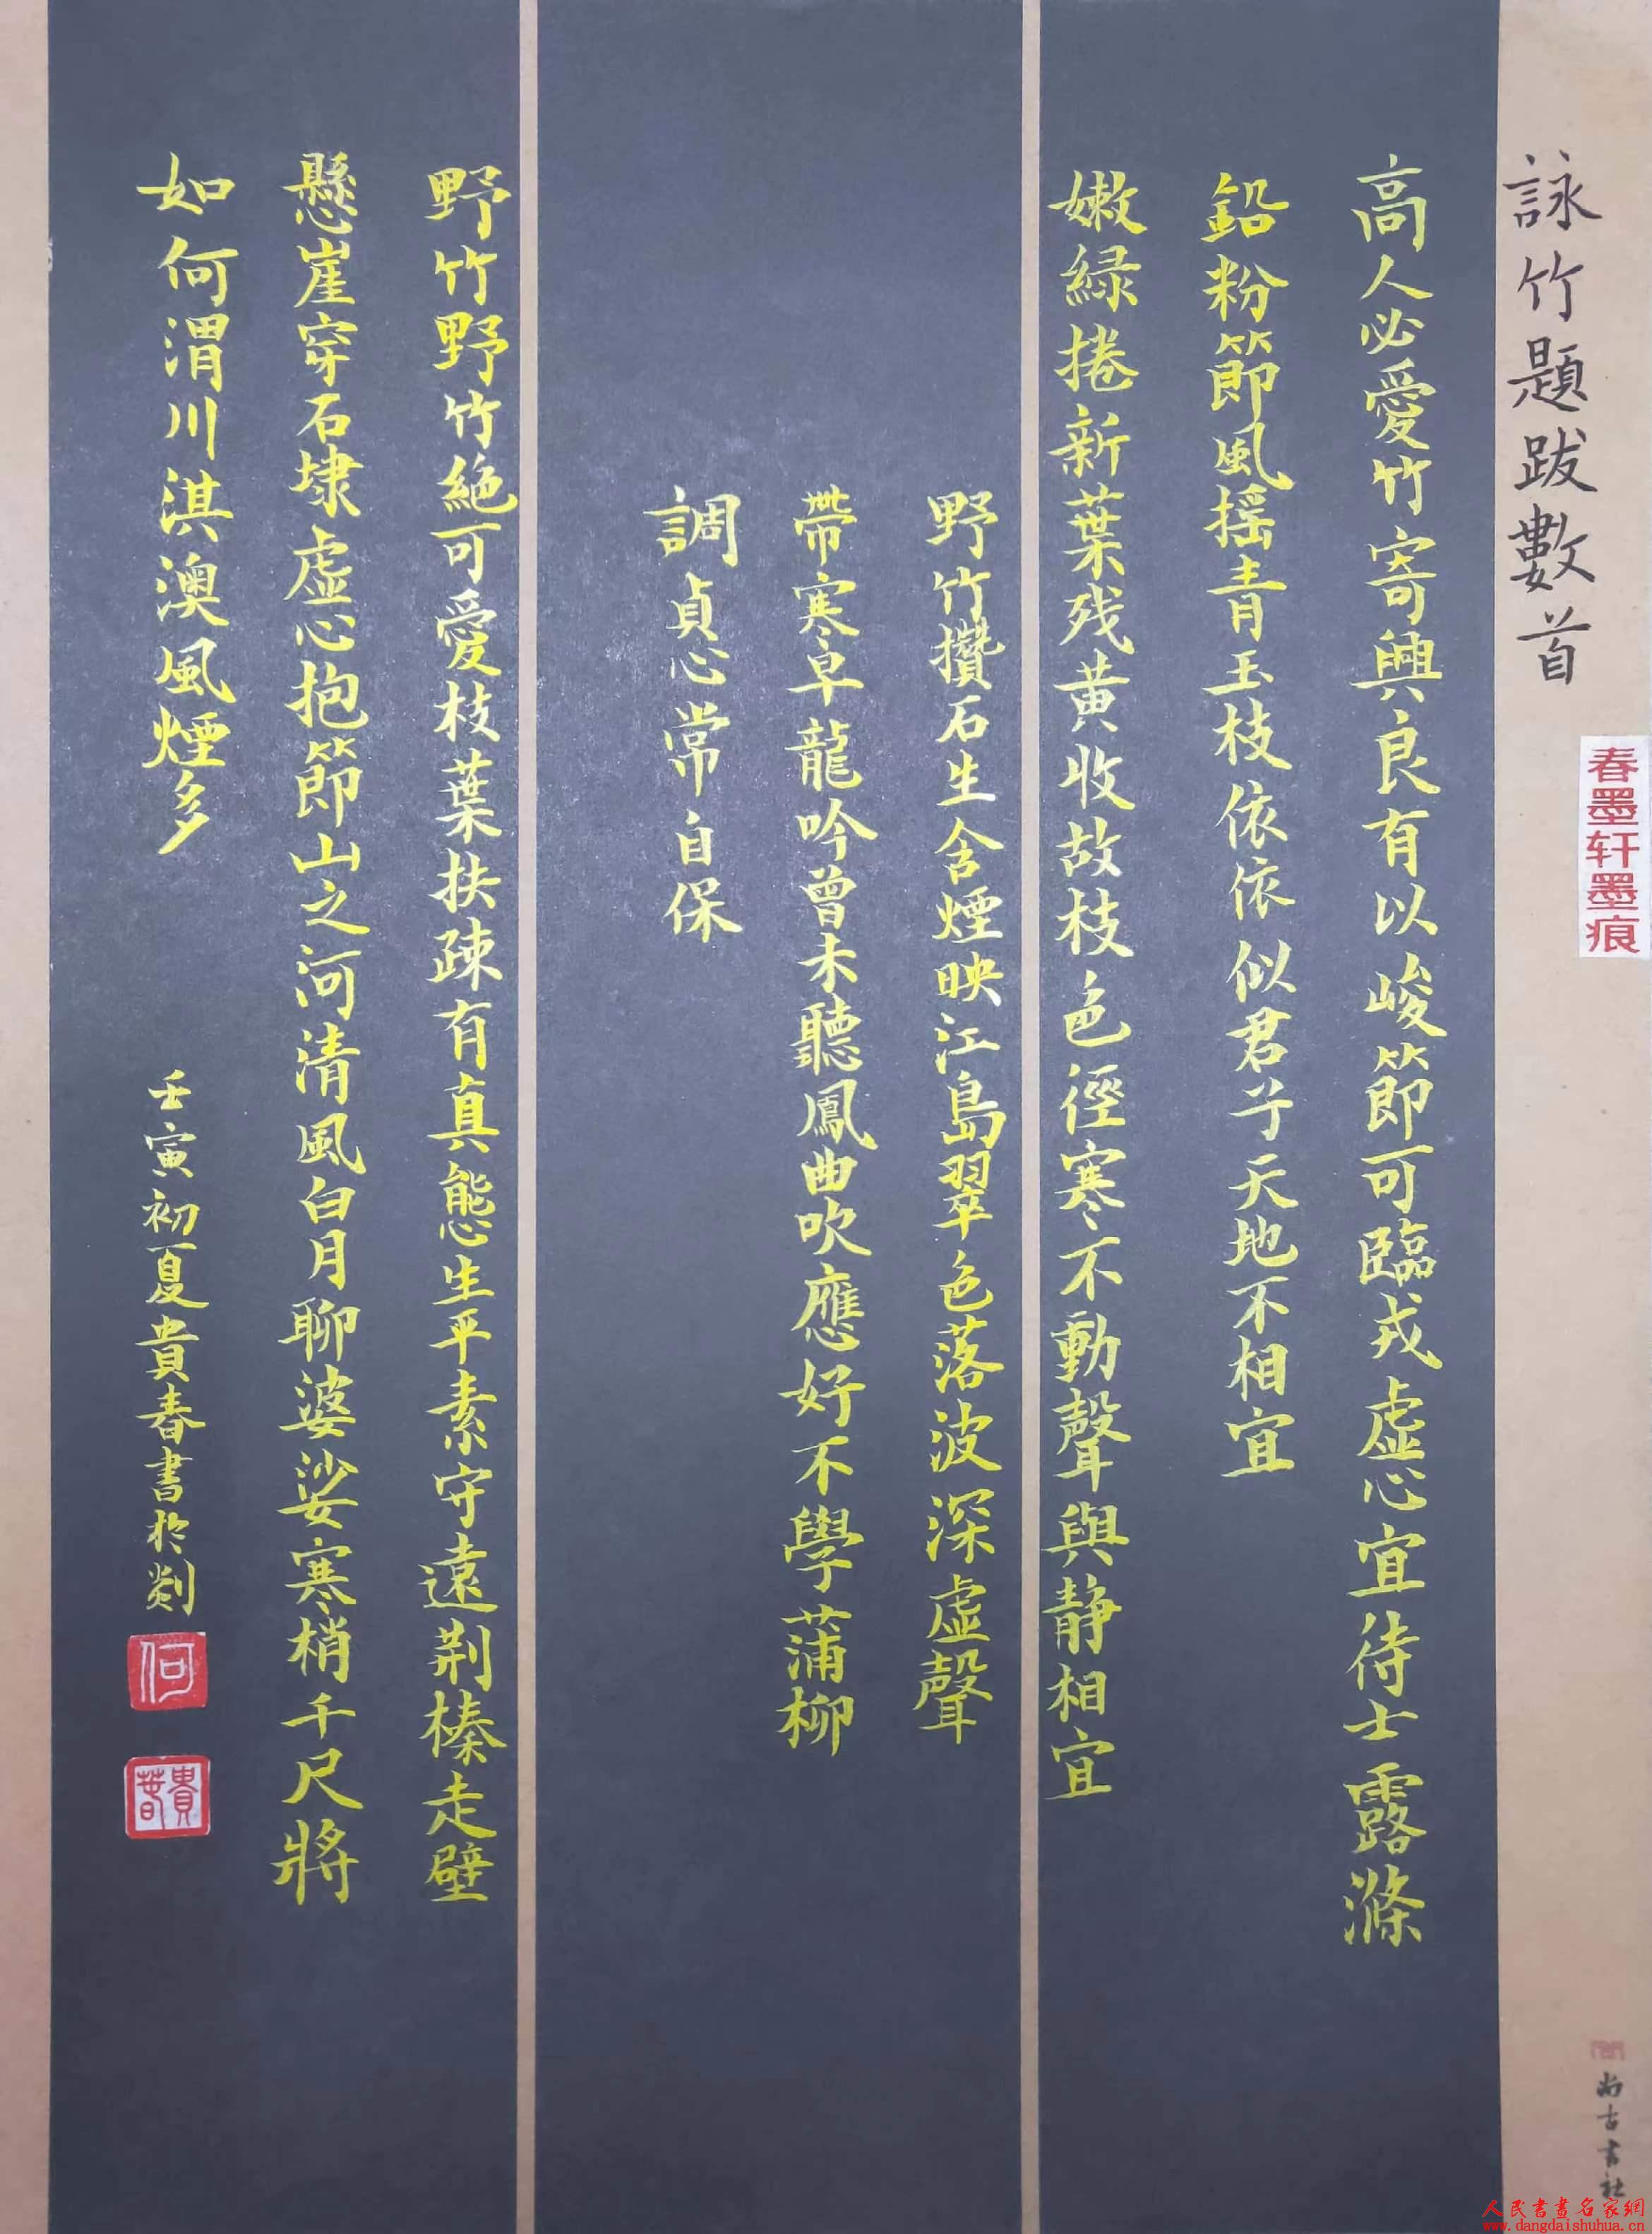 詠竹題跋數首
春墨轩墨痕
高人必愛竹寄興良有以峻節可臨戎虛心宜待士露滌
鉛粉節風摇青玉枝依依似君子天地不相宜
嫩綠捲新葉残黄收故枝色徑寒不動聲與静相宜
野竹攢石生含煙映江島翠色落波深虛聲
帶寒早龍吟曾未聽鳳曲吹應好不學蒲柳
調貞心常自保
野竹野竹絶可愛枝葉扶疎有真態生平素守遠荆榛走壁
懸崖穿石埭虛心抱節山之河清風白月聊婆娑寒梢千尺將
如何渭川淇澳風煙多
壬寅初夏貴春書於剡
何
貴春
尚古書社
人民書畫名家網
www.dangdaishuhua.cn